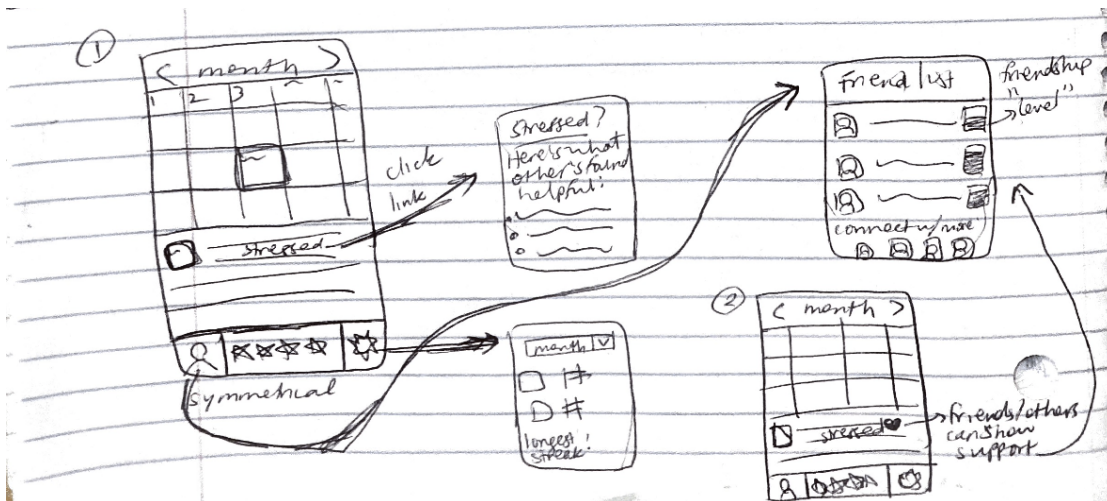 ①
< month >
1 2 3
stressed
symmetrical
click
link
stressed?
Here's what
other's found
helpful:
month
#
#
longest
streak!
friend list
connect w/ more
friendship
"level"
②
< month >
stressed
friends/others
can show
support